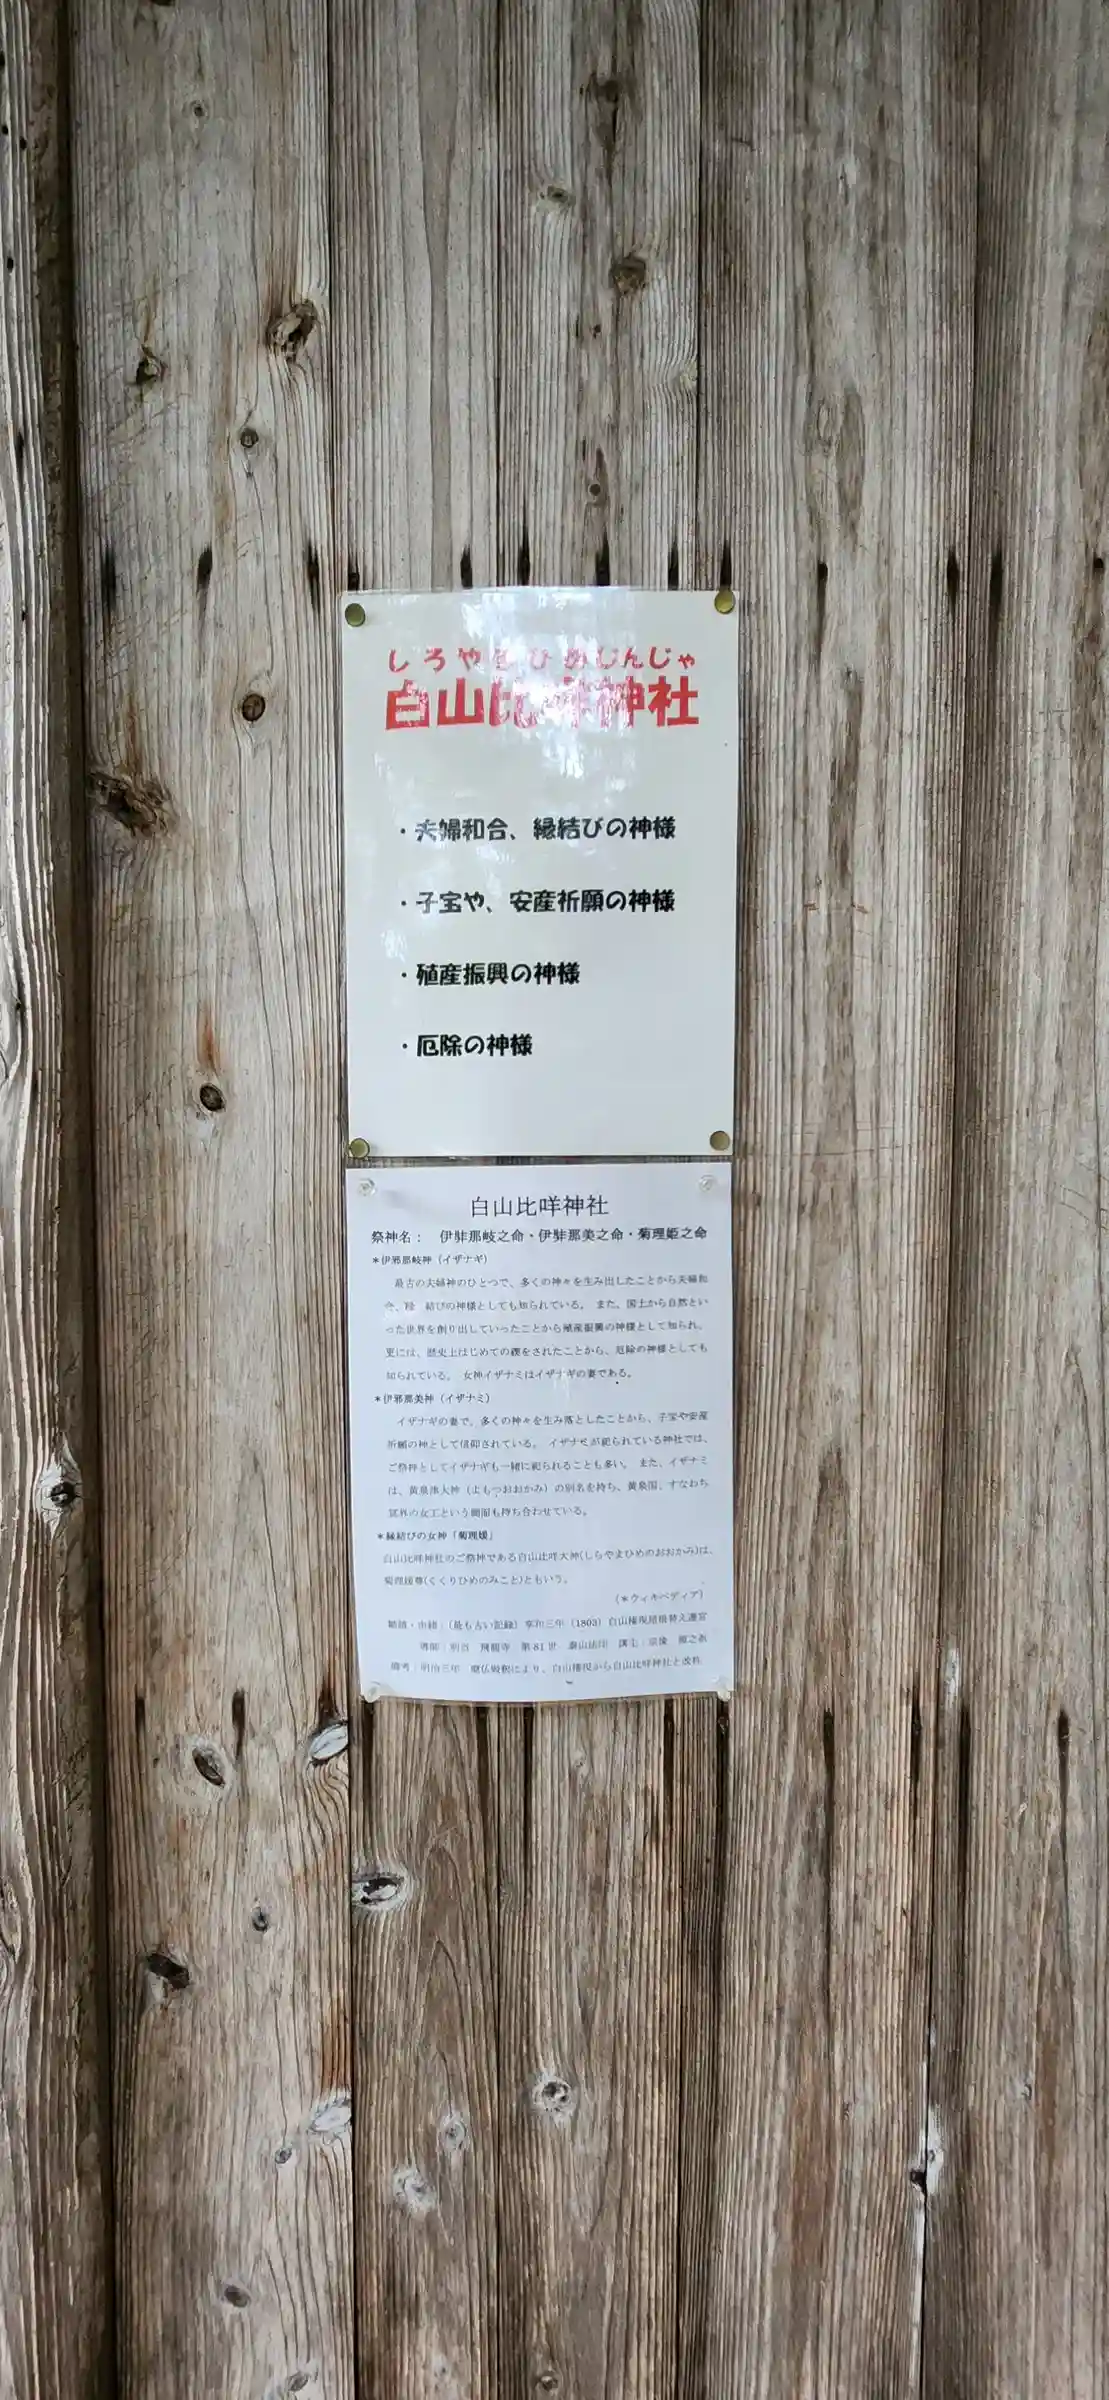 しろやまひめじんじゃ
白山比咩神社
・夫婦和合、縁結びの神様
・子宝や、安産祈願の神様
・殖産振興の神様
・厄除の神様
白山比咩神社
祭神名： 伊弉那岐之命・伊弉那美之命・菊理姫之命
＊伊邪那岐神（イザナギ）
最古の夫婦神のひとつで、多くの神々を生み出したことから夫婦和
合、 結びの神様としても知られている。 また、国土から自然とい
った世界を創り出していったことから殖産振興の神様として知られ、
更には、歴史上はじめての禊をされたことから、厄除の神様としても
知られている。 女神イザナミはイザナギの妻である。
＊伊邪那美神（イザナミ）
イザナギの妻で、多くの神々を生み落としたことから、子宝や安産
祈願の神として信仰されている。 イザナミが祀られている神社では、
ご祭神としてイザナギも一緒に祀られることも多い。 また、イザナミ
は、黄泉津大神（よもつおおかみ）の別名を持ち、黄泉国、すなわち
冥界の女王という側面も持ち合わせている。
＊縁結びの女神「菊理媛」
白山比咩神社のご祭神である白山比咩大神(しらやまひめのおおかみ)は、
菊理媛尊(くくりひめのみこと)ともいう。
（＊ウィキペディア）
・由緒：（最も古い記録）享和三年（1803）白山権現屋根替え遷宮
導師：別当 飛龍寺 第81世 泰山法印
備考：明治三年 廃仏毀釈により、白山権現から白山比咩神社と改称